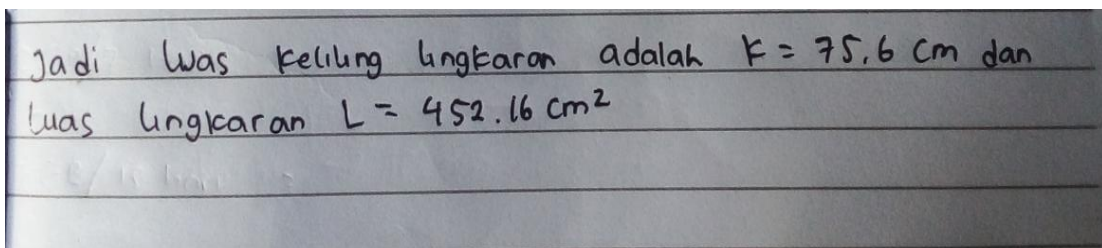 Jadi luas keliling lingkaran adalah K = 75,6 cm dan
luas lingkaran L = 452.16 cm²